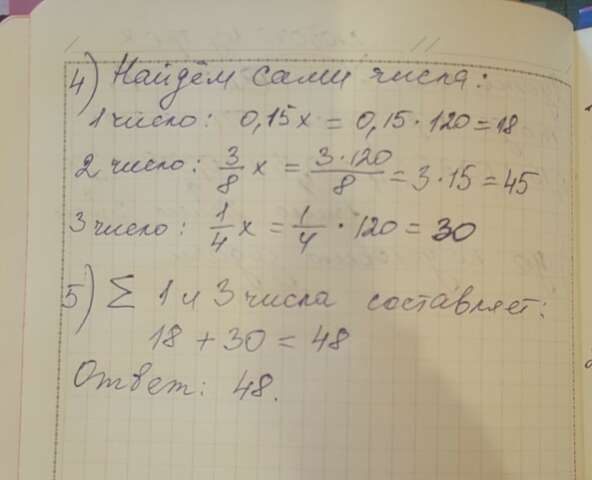 4) Найдём сами числа:
1 число: 0,15x = 0,15·120=18
2 число: 3/8 x = 3·120/8 = 3·15 = 45
3 число: 1/4 x = 1/4 · 120 = 30
5) Σ 1 и 3 числа составляет:
18 + 30 = 48
Ответ: 48.